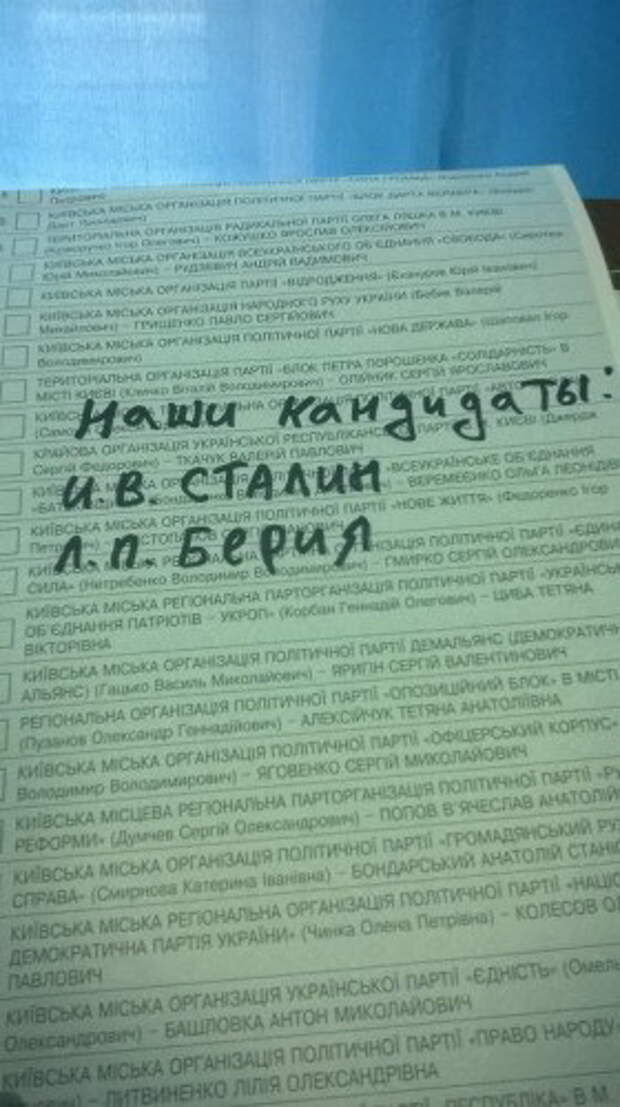 Петрович
КИЇВСЬКА МІСЬКА ОРГАНІЗАЦІЯ ПОЛІТИЧНОЇ ПАРТІЇ «БЛОК
ТЕРИТОРІАЛЬНА ОРГАНІЗАЦІЯ РАДИКАЛЬНОЇ ПАРТІЇ ОЛЕГА ЛЯШКА В М. КИЄВІ
Ігор Олегович) – КОЖУШКО ЯРОСЛАВ ОЛЕКСІЙОВИЧ
КИЇВСЬКА МІСЬКА ОРГАНІЗАЦІЯ ВСЕУКРАЇНСЬКОГО ОБ'ЄДНАННЯ «СВОБОДА» (Сиротюк
Юрій Миколайович) – РУДЗЕВИЧ АНДРІЙ ВАДИМОВИЧ
КИЇВСЬКА МІСЬКА ОРГАНІЗАЦІЯ ПАРТІЇ «ВІДРОДЖЕННЯ» (Єхануров Юрій Іванович)
КИЇВСЬКА МІСЬКА ОРГАНІЗАЦІЯ НАРОДНОГО РУХУ УКРАЇНИ (Бебик Валерій
Михайлович) – ГРИЩЕНКО ПАВЛО СЕРГІЙОВИЧ
КИЇВСЬКА МІСЬКА ОРГАНІЗАЦІЯ ПОЛІТИЧНОЇ ПАРТІЇ «НОВА ДЕРЖАВА» (Шаповал Ігор
Володимирович)
ТЕРИТОРІАЛЬНА ОРГАНІЗАЦІЯ ПАРТІЇ «БЛОК ПЕТРА ПОРОШЕНКА «СОЛІДАРНІСТЬ» В
МІСТІ КИЄВІ (Кличко Віталій Володимирович) – ОЛІЙНИК СЕРГІЙ ЯРОСЛАВОВИЧ
Наши кандидаты:
КРАЙОВА ОРГАНІЗАЦІЯ УКРАЇНСЬКОЇ РЕСПУБЛІКАНСЬКОЇ
Сергій Федорович) – ТКАЧУК ВАЛЕРІЙ ПАВЛОВИЧ
«ВСЕУКРАЇНСЬКЕ ОБ'ЄДНАННЯ
И.В. СТАЛИН
– ВЕРЕМЕЄНКО ОЛЬГА
ПАРТІЇ «НОВЕ ЖИТТЯ» (Федоренко Ігор
Л.П. Берия
ОРГАНІЗАЦІЯ ПОЛІТИЧНОЇ ПАРТІЇ «ЄДИНА
СИЛА» (Нетребенко Володимир Володимирович) – ГМИРКО СЕРГІЙ ОЛЕКСАНДРОВИЧ
КИЇВСЬКА МІСЬКА РЕГІОНАЛЬНА ПАРТОРГАНІЗАЦІЯ ПОЛІТИЧНОЇ ПАРТІЇ «УКРАЇНСЬК
ОБ'ЄДНАННЯ ПАТРІОТІВ – УКРОП» (Корбан Геннадій Олегович) – ЦИВА ТЕТЯНА
ВІКТОРІВНА
КИЇВСЬКА МІСЬКА ОРГАНІЗАЦІЯ ПОЛІТИЧНОЇ ПАРТІЇ ДЕМАЛЬЯНС (ДЕМОКРАТИЧН
АЛЬЯНС) (Гацько Василь Миколайович) – ЯРИГІН СЕРГІЙ ВАЛЕНТИНОВИЧ
РЕГІОНАЛЬНА ОРГАНІЗАЦІЯ ПОЛІТИЧНОЇ ПАРТІЇ «ОПОЗИЦІЙНИЙ БЛОК» В МІСТІ
(Пузанов Олександр Геннадійович) – АЛЕКСІЙЧУК ТЕТЯНА АНАТОЛІЇВНА
КИЇВСЬКА МІСЬКА ОРГАНІЗАЦІЯ ПОЛІТИЧНОЇ ПАРТІЇ «ОФІЦЕРСЬКИЙ КОРПУС»
Володимир Володимирович) – ЯГОВЕНКО СЕРГІЙ МИКОЛАЙОВИЧ
КИЇВСЬКА МІСЦЕВА РЕГІОНАЛЬНА ПАРТОРГАНІЗАЦІЯ ПОЛІТИЧНОЇ ПАРТІЇ «РУ
РЕФОРМИ» (Думчев Сергій Олександрович) – ПОПОВ В'ЯЧЕСЛАВ АНАТОЛІЙ
КИЇВСЬКА МІСЬКА ОРГАНІЗАЦІЯ ПОЛІТИЧНОЇ ПАРТІЇ «ГРОМАДЯНСЬКИЙ РУХ
СПРАВА» (Смирнова Катерина Іванівна) – БОНДАРСЬКИЙ АНАТОЛІЙ СТАНІС
КИЇВСЬКА МІСЬКА РЕГІОНАЛЬНА ОРГАНІЗАЦІЯ ПОЛІТИЧНОЇ ПАРТІЇ «НАЦІО
ДЕМОКРАТИЧНА ПАРТІЯ УКРАЇНИ» (Чинка Олена Петрівна) – КОЛЕСОВ ОЛ
ПАВЛОВИЧ
КИЇВСЬКА МІСЬКА ОРГАНІЗАЦІЯ УКРАЇНСЬКОЇ ПАРТІЇ «ЄДНІСТЬ» (Омель
Олександрович) – БАШЛОВКА АНТОН МИКОЛАЙОВИЧ
КИЇВСЬКА МІСЬКА ОРГАНІЗАЦІЯ ПОЛІТИЧНОЇ ПАРТІЇ «ПРАВО НАРОДУ»
– ЛИТВИНЕНКО ЛІЛІЯ ОЛЕКСАНДРІВНА
ПАРТІЇ «РЕСПУБЛІКА» В М.